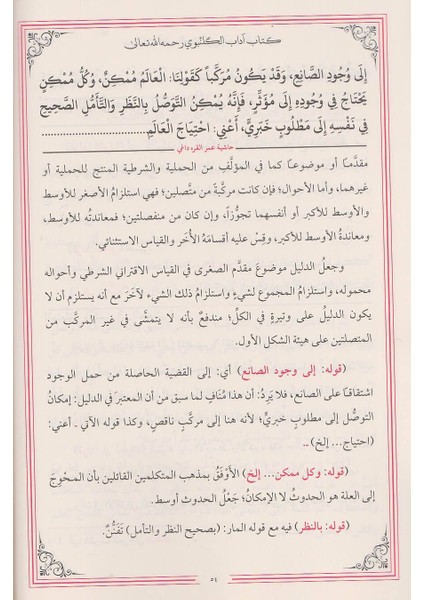 كتاب آداب الكلنبوي رحمه الله تعالى
إِلَى وُجُودِ الصَّانِعِ، وَقَدْ يَكُونُ مُرَكَّباً كَقَوْلِنَا: الْعَالَمُ مُمْكِنٌ، وَكُلُّ مُمْكِنٍ
يَحْتَاجُ فِي وُجُودِهِ إِلَى مُؤَثِّرٍ، فَإِنَّهُ يُمْكِنُ التَّوَصُّلُ بِالنَّظَرِ وَالتَّأَمُّلِ الصَّحِيحِ
فِي نَفْسِهِ إِلَى مَطْلُوبٍ خَبَرِيٍّ، أَعْنِي: احْتِيَاجَ الْعَالَمِ..............................
حاشية عمر القره داغي
مقدَّمًا أو موضوعًا كما في المؤلَّفِ من الحملية والشرطية المنتج للحملية أو
غيرهما، وأما الأحوال؛ فإن كانت مركَّبةً من متَّصلين؛ فهي استلزامُ الأصغر للأوسط
والأوسط للأكبر أو أنفسهما تجوُّزاً، وإن كان من منفصلتين؛ فمعاندتُه للأوسط،
ومعاندةُ الأوسط للأكبر، وقِسْ عليه أقسامَهُ الأُخَر والقياس الاستثنائي.
وجعلُ الدليل موضوعَ مقدَّم الصغرى في القياس الاقتراني الشرطي وأحواله
محموله، واستلزامُ المجموع لشيءٍ واستلزامُ ذلك الشيء لآخرَ مع أنه يستلزم أن لا
يكون الدليلُ على وتيرةٍ في الكلِّ؛ مندفعٌ بأنه لا يتمشَّى في غير المركَّب من
المتصلتين على هيئة الشكل الأول.
(قوله: إلى وجود الصانع) أي: إلى القضية الحاصلة من حمل الوجود
اشتقاقًا على الصانع، فلا يَرِدُ: أن هذا مُنافٍ لما سبق من أن المعتبرَ في الدليل: إمكانُ
التوصُّل إلى مطلوبٍ خبريٍّ؛ لأنه هنا إلى مركَّبٍ ناقصٍ، وكذا قوله الآتي - أعني:
(احتياج... إلخ) -.
(قوله: وكل ممكن... إلخ) الأَوْفَقُ بمذهب المتكلمين القائلين بأن المحْوِجَ
إلى العلة هو الحدوثُ لا الإمكانُ؛ جَعْلُ الحدوث أوسط.
(قوله: بالنظر) فيه مع قوله المار: (بصحيح النظر والتأمل) تَفَنُّنٌ.
٥٤